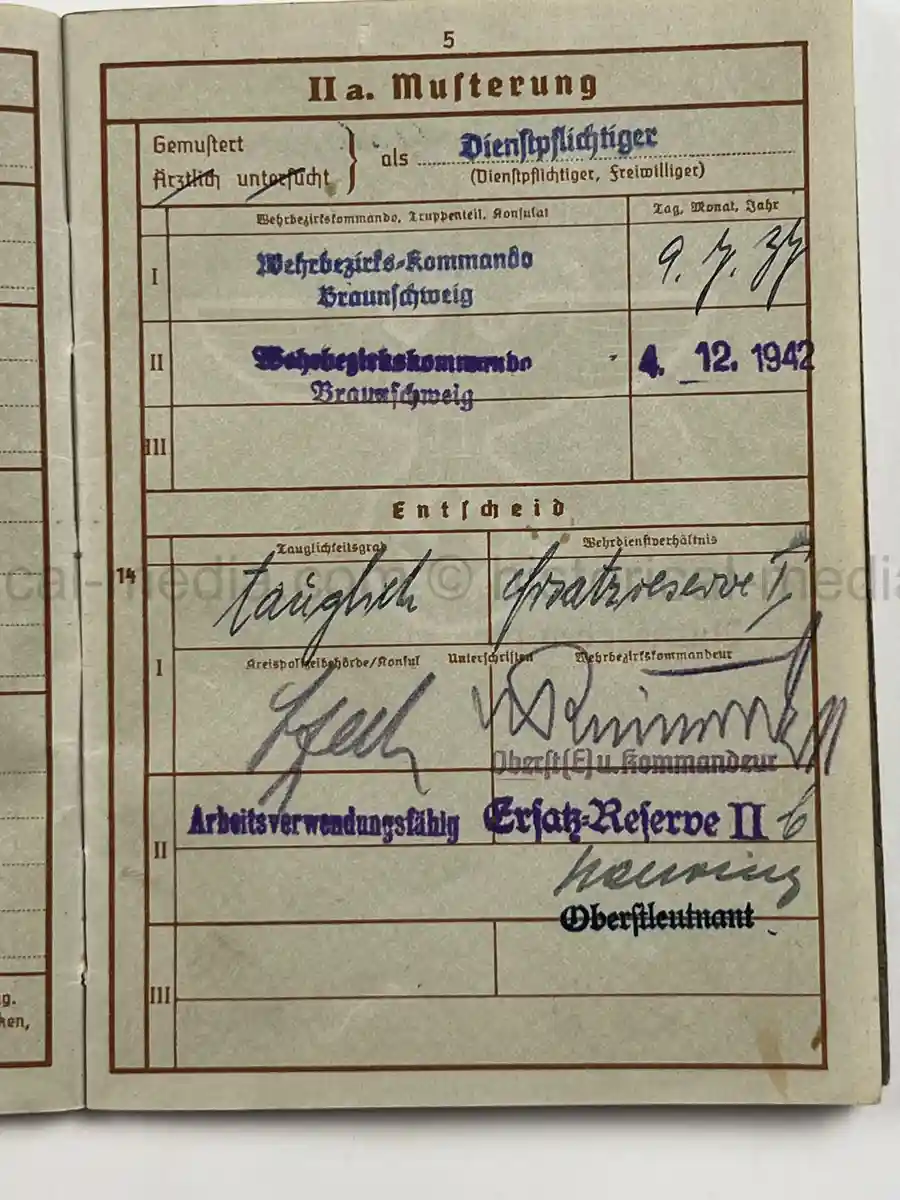 5
II a. Musterung
Gemustert
Ärztlich untersucht
als Dienstpflichtiger
(Dienstpflichtiger, Freiwilliger)
Wehrbezirkskommando, Truppenteil, Konsulat
Tag, Monat, Jahr
I
Wehrbezirks-Kommando
Braunschweig
9. 7. 37
II
Wehrbezirkskommando
Braunschweig
4. 12. 1942
III
Entscheid
Tauglichkeitsgrad
Wehrdienstverhältnis
14
tauglich
Ersatzreserve I
I
Kreispolizeibehörde/Konsul
Unterschriften
Wehrbezirkskommandeur
Oberst(E) u. Kommandeur
II
Arbeitsverwendungsfähig
Ersatz-Reserve II b
Oberstleutnant
III
g.
ken,
cal-media.com © historical-media